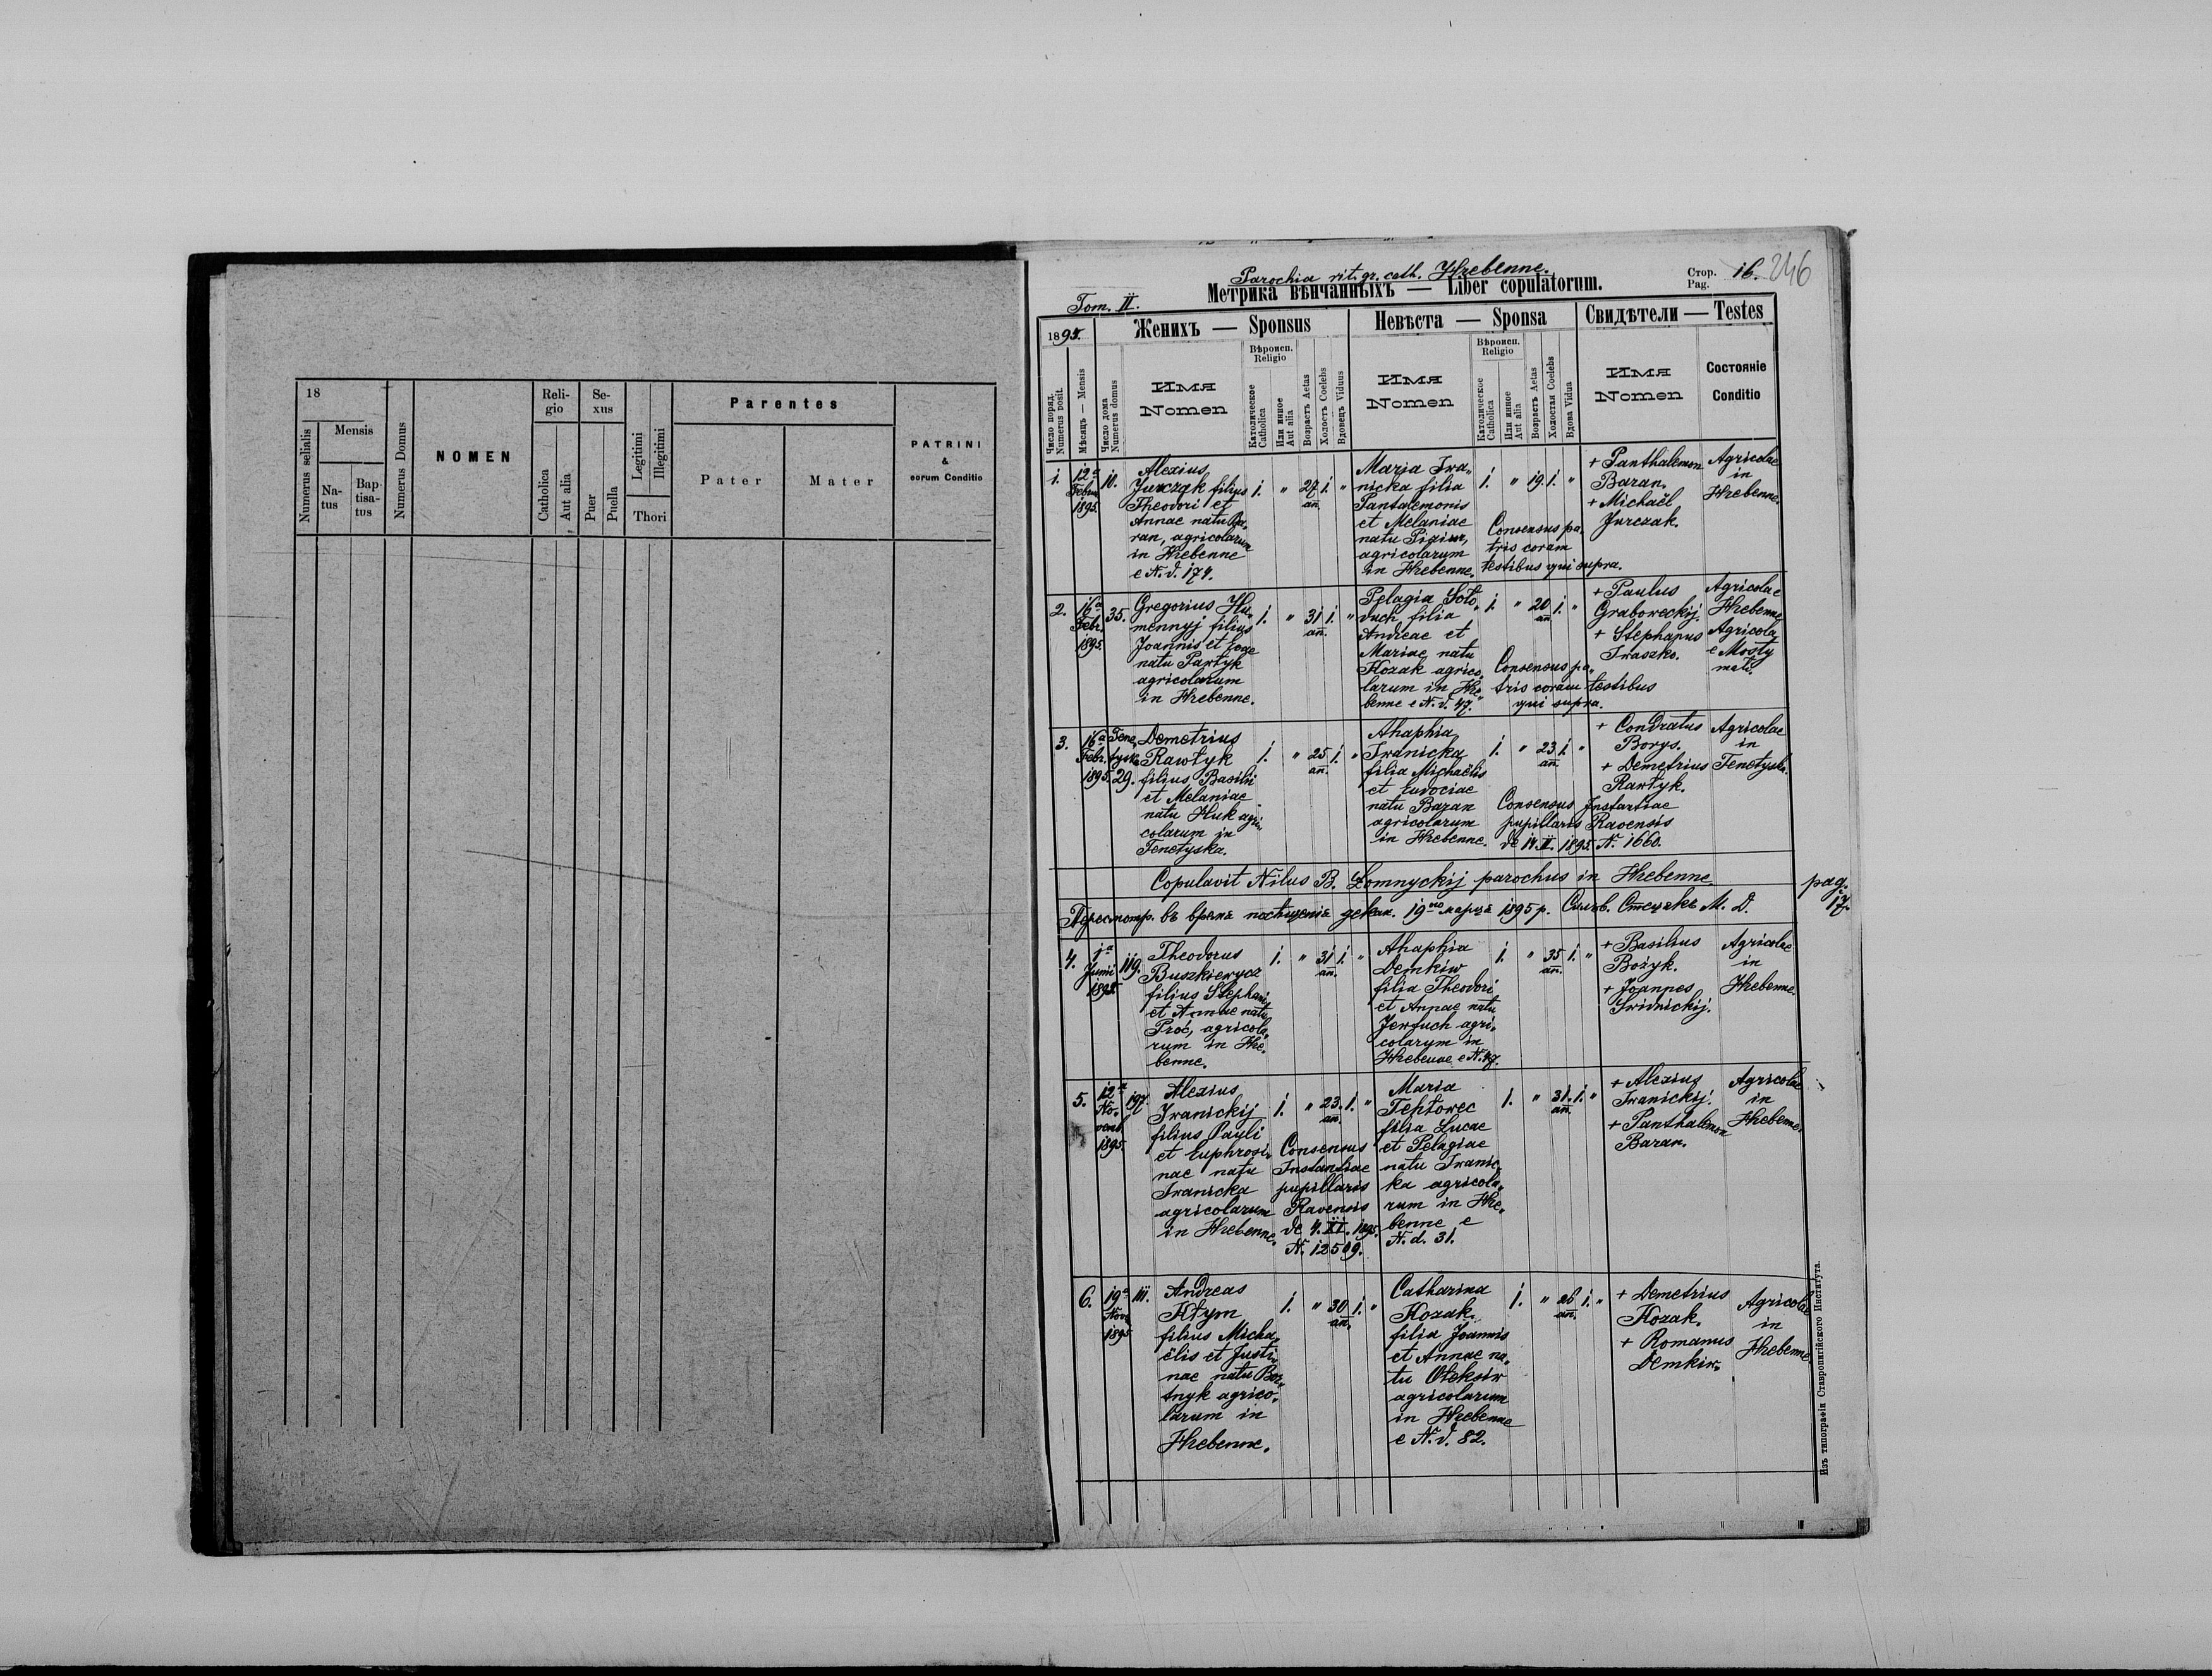 18
Numerus serialis
Mensis
Na-
tus
Bap-
tisa-
tus
Numerus Domus
NOMEN
Reli-
gio
Catholica
Aut alia
Se-
xus
Puer
Puella
Legitimi
Illegitimi
Thori
Parentes
Pater
Mater
PATRINI
&
eorum Conditio
Parochia rit. gr. cath. Hrebenne.
Tom. II.
Метрика вѣнчанныхъ — Liber copulatorum.
Стор.
Pag.
16.
246
1895.
Женихъ — Sponsus
Невѣста — Sponsa
Свидѣтели — Testes
Число поряд.
Numerus posit.
Мѣсяцъ — Mensis
Число дома
Numerus domus
Имя
Nomen
Вѣроисп.
Religio
Католическое
Catholica
Или инное
Aut alia
Возрастъ Aetas
Холостъ Coelebs
Вдовецъ Viduus
Имя
Nomen
Вѣроисп.
Religio
Католическое
Catholica
Или инное
Aut alia
Возрастъ Aetas
Холостая Coelebs
Вдова Vidua
Имя
Nomen
Состояніе
Conditio
1.
12a
Febru
1895.
10.
Alexius
Jurczak filius
Theodori et
Annae natu Ba„
ran, agricolarum
in Hrebenne
e N. d. 174.
1. „ 27 1. „
an.
Maria Iwa„
nicka filia
Pantalemonis
et Melaniae
agricolarum
in Hrebenne.
1. „ 19. 1. „
Consensus pa„
tris coram
testibus qui supra.
+ Panthalemon
Baran.
+ Michaël
Jurczak.
Agricolae
in
Hrebenne.
2.
16a
Febr.
1895.
35.
Gregorius Hu„
mennyj filius
Joannis et Evae
natu Pawłyk
agricolarum
in Hrebenne.
1. „ 31 1. „
an.
Pelagia Soło„
duch filia
Andreae et
Mariae natu
Kozak agrico„
larum in Hre„
benne e N. d. 47.
1. „ 20 1. „
an.
Consensus pa„
tris coram testibus
qui supra.
+ Paulus
Graboweckij.
+ Stephanus
Iwaszko.
Agricola e
Hrebenne
Agricola
e Mosty
małe.
3.
16a
Febr.
1895.
Tene„
tyska
29.
Demetrius
Rawłyk
filius Basilii
et Melaniae
natu Huk agri„
colarum in
Tenetyska.
1. „ 25 1. „
an.
Ahaphia
Iwanicka
filia Michaëlis
et Eudociae
natu Baran
agricolarum
in Hrebenne.
1. „ 23 1. „
an.
Consensus Instantiae
pupillaris Ravensis
de 14. II. 1895. N. 1660.
+ Condratus
Borys.
+ Demetrius
Rawłyk.
Agricolae
in
Tenetyska.
Copulavit Nilus B. Łomnyckij parochus in Hrebenne.
pag.
17.
Пересмотр. въ время посѣщенія декан. 19го марца 1895 р. Сильв. Стецакъ М. Д.
4.
1a
Junii
1895.
119.
Theodorus
Buszkiewycz
filius Stephani
et Annae natu
Proć, agricola„
rum in Hre„
benne.
1. „ 31 1. „
an.
Ahaphia
Demkiw
filia Theodori
et Annae natu
agri„
colarum in
Hrebenne e N. 47.
1. „ 35 1. „
an.
+ Basilius
Bożyk.
+ Joannes
Swidnickij.
Agricolae
in
Hrebenne.
5.
12a
No„
vemb
1895.
197.
Alexius
Iwanickij
filius Pauli
et Euphrosi„
nae natu
Iwanicka
agricolarum
in Hrebenne.
1. „ 23. 1. „
an.
Consensus
Instantiae
pupillaris
Ravensis
de 4. XI. 1895.
N. 12509.
Maria
Tepłowec
filia Lucae
et Pelagiae
natu Iwanic„
ka agricola„
rum in Hre„
benne e
N. d. 31.
1. „ 31. 1. „
an.
+ Alexius
Iwanickij.
+ Panthalemon
Baran.
Agricolae
in
Hrebenne.
6.
19a
Nov.
1895
111.
Andreas
Kłym
filius Micha„
ëlis et Justi„
nae natu Bor„
tnyk agrico„
larum in
Hrebenne.
1. „ 30 1. „
an.
Catharina
Kozak
filia Joannis
et Annae na„
tu Ołeksiw
agricolarum
in Hrebenne
e N. d. 82.
1. „ 26 1. „
an.
+ Demetrius
Kozak.
+ Romanus
Demkiw.
Agricolae
in
Hrebenne.
Изъ типографіи Ставропигійского Института.